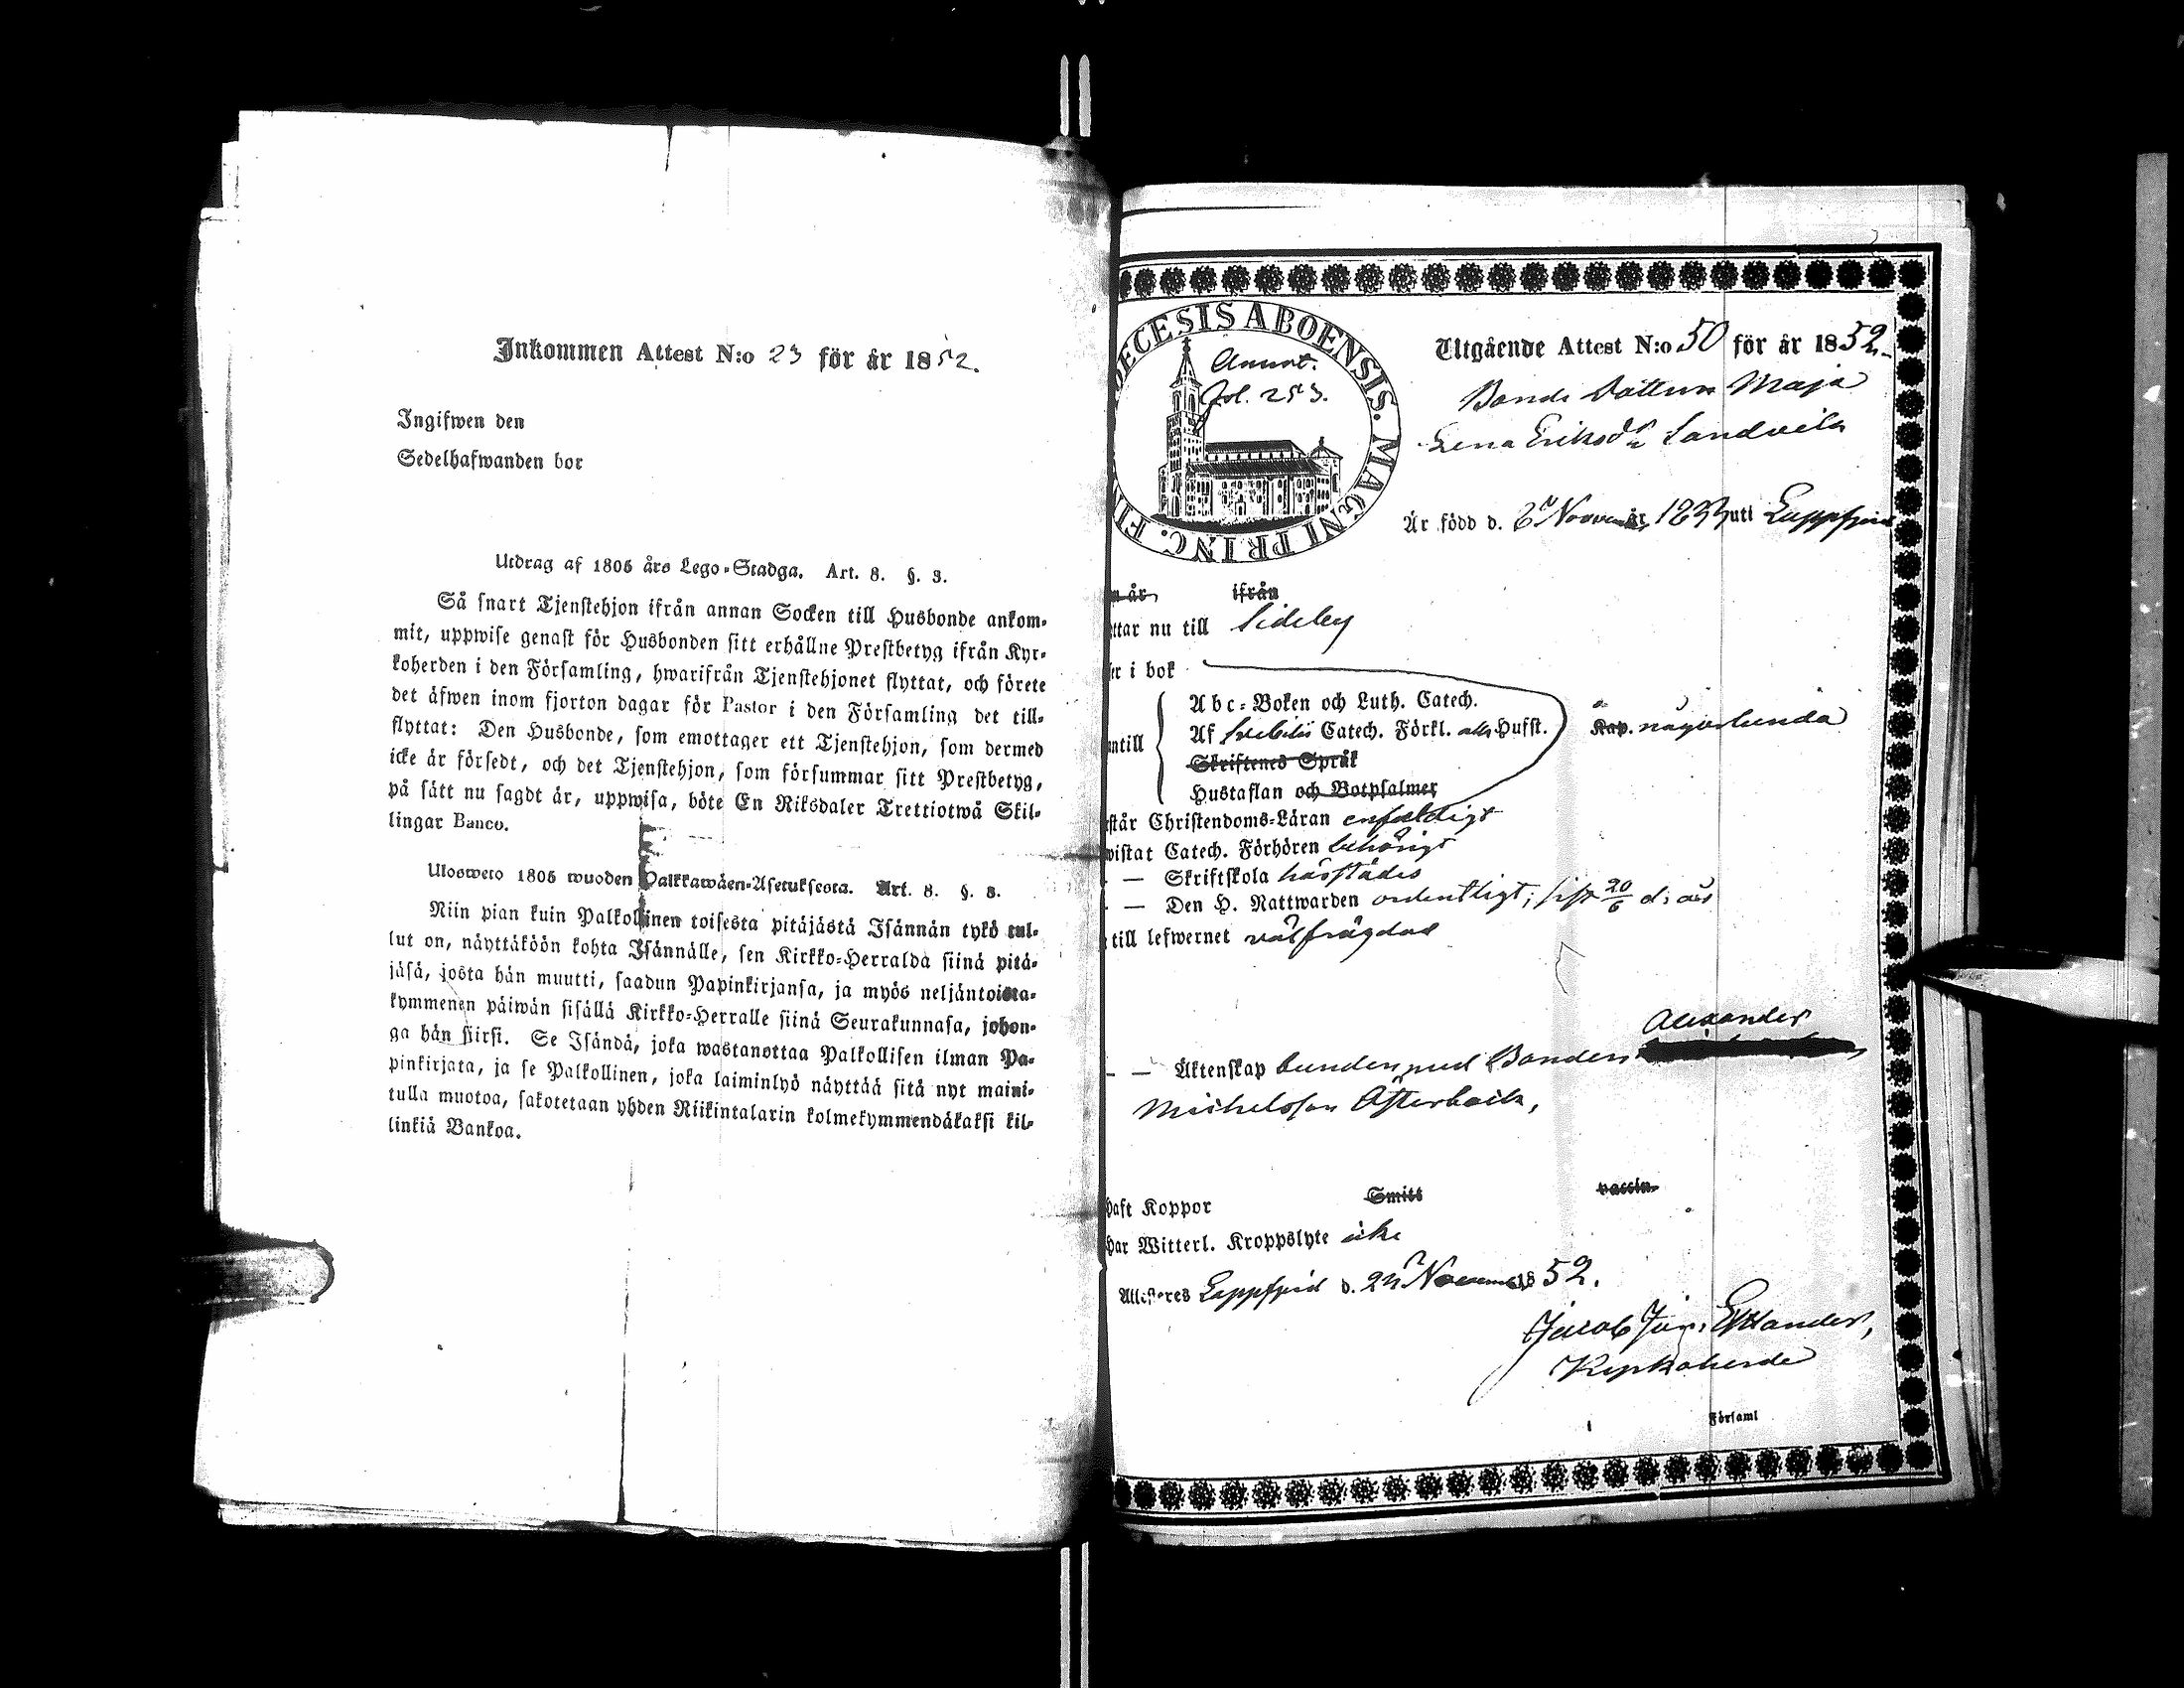 Inkommen Attest N:o 23 för år 1852.
Ingifwen den
Sedelhafwanden bor
Utdrag af 1805 års Lego-Stadga. Art. 8. §. 3.
Så snart Tjenstehjon ifrån annan Socken till Husbonde ankom-
mit, uppwise genast för Husbonden sitt erhållne Prestbetyg ifrån Kyr-
koherden i den Församling, hwarifrån Tjenstehjonet flyttat, och förete
det äfwen inom fjorton dagar för Pastor i den Församling det till-
flyttat: Den Husbonde, som emottager ett Tjenstehjon, som dermed
icke är försedt, och det Tjenstehjon, som försummar sitt Prestbetyg,
på sätt nu sagdt är, uppwisa, böte En Riksdaler Trettiotwå Skil-
lingar Banco.
Ulosweto 1805 wuoden Palkkawäen-Asetuksesta. Art. 8. §. 3.
Niin pian kuin Palkollinen toisesta pitäjästä Isännän tykö tul-
lut on, näyttäköön kohta Isännälle, sen Kirkko-Herralda siinä pitä-
jäsä, josta hän muutti, saadun Papinkirjansa, ja myös neljäntoista-
kymmenen päiwän sisällä Kirkko-Herralle siinä Seurakunnasa, johon-
ga hän siirsi. Se Isändä, joka wastanottaa Palkollisen ilman Pa-
pinkirjata, ja se Palkollinen, joka laiminlyö näyttää sitä nyt maini-
tulla muotoa, sakotetaan yhden Riikintalarin kolmekymmendäkaksi kil-
linkiä Bankoa.
DECESIS ABOENSIS. MAGNI PRINC. FIN
Annot.
Fol. 253.
Utgående Attest N:o 50 för år 1852.
Bonde Dottern Maja
Lena Eriksdr Sandvik
Är född d. 2 November år 1833 uti Lappfjerd
n år, ifrån
ttar nu till Sideby
er i bok
Abc-Boken och Luth. Catech.
Af Svebilii Catech. Förkl. Husst. Kap. någorlunda
antill
Skriftenes Språk
Hustaflan och Botpsalmer
rstår Christendoms-Läran enfaldigt
wistat Catech. Förhören behörigt
— Skriftskola härstädes
— Den H. Nattwarden ordentligt; sist 20/6 d: år
till lefwernet välfrägdad
Alexander
— — Äktenskap bunden med Bonden
Michelsson Österback,
haft Koppor Smitt vaccin.
har Witterl. Kroppslyte icke
Attesteres Lappfjerd d. November 1852.
Jacob Joh. Estlander,
Kyrkoherde
Församl